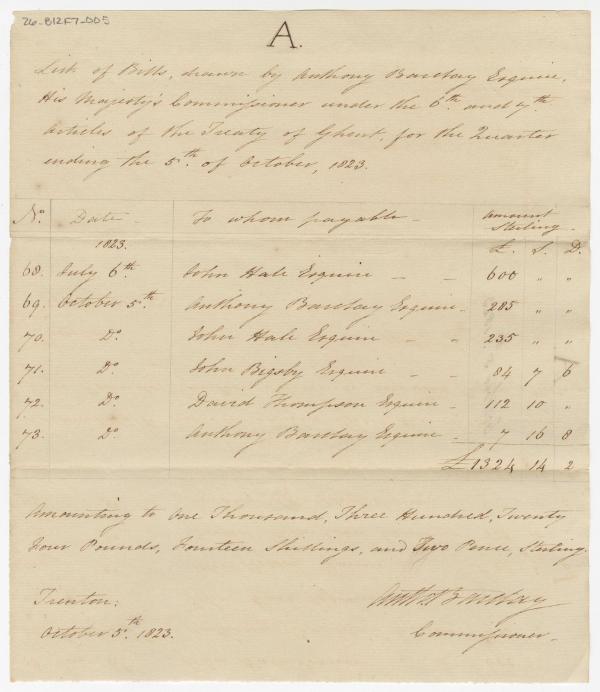 26-B12F7-005
A.
List of Bills, drawn by Anthony Barclay Esquire,
His Majesty's Commissioner under the 6th and 7th
Articles of the Treaty of Ghent, for the Quarter
ending the 5th of October, 1823.
No. Date To whom payable Amount Sterling.
1823. £. S. D.
68. July 6th John Hale Esquire - - 600 " "
69. October 5th Anthony Barclay Esquire - 285 " "
70. Do John Hale Esquire - - 235 " "
71. Do John Bigsby Esquire - - 84 7 6
72. Do David Thompson Esquire - 112 10 "
73. Do Anthony Barclay Esquire - 7 16 8
£1324 14 2
Amounting to One Thousand, Three Hundred, Twenty
Four Pounds, Fourteen Shillings, and Two Pence, Sterling.
Trenton: Anth Barclay
October 5th 1823. Commissioner -